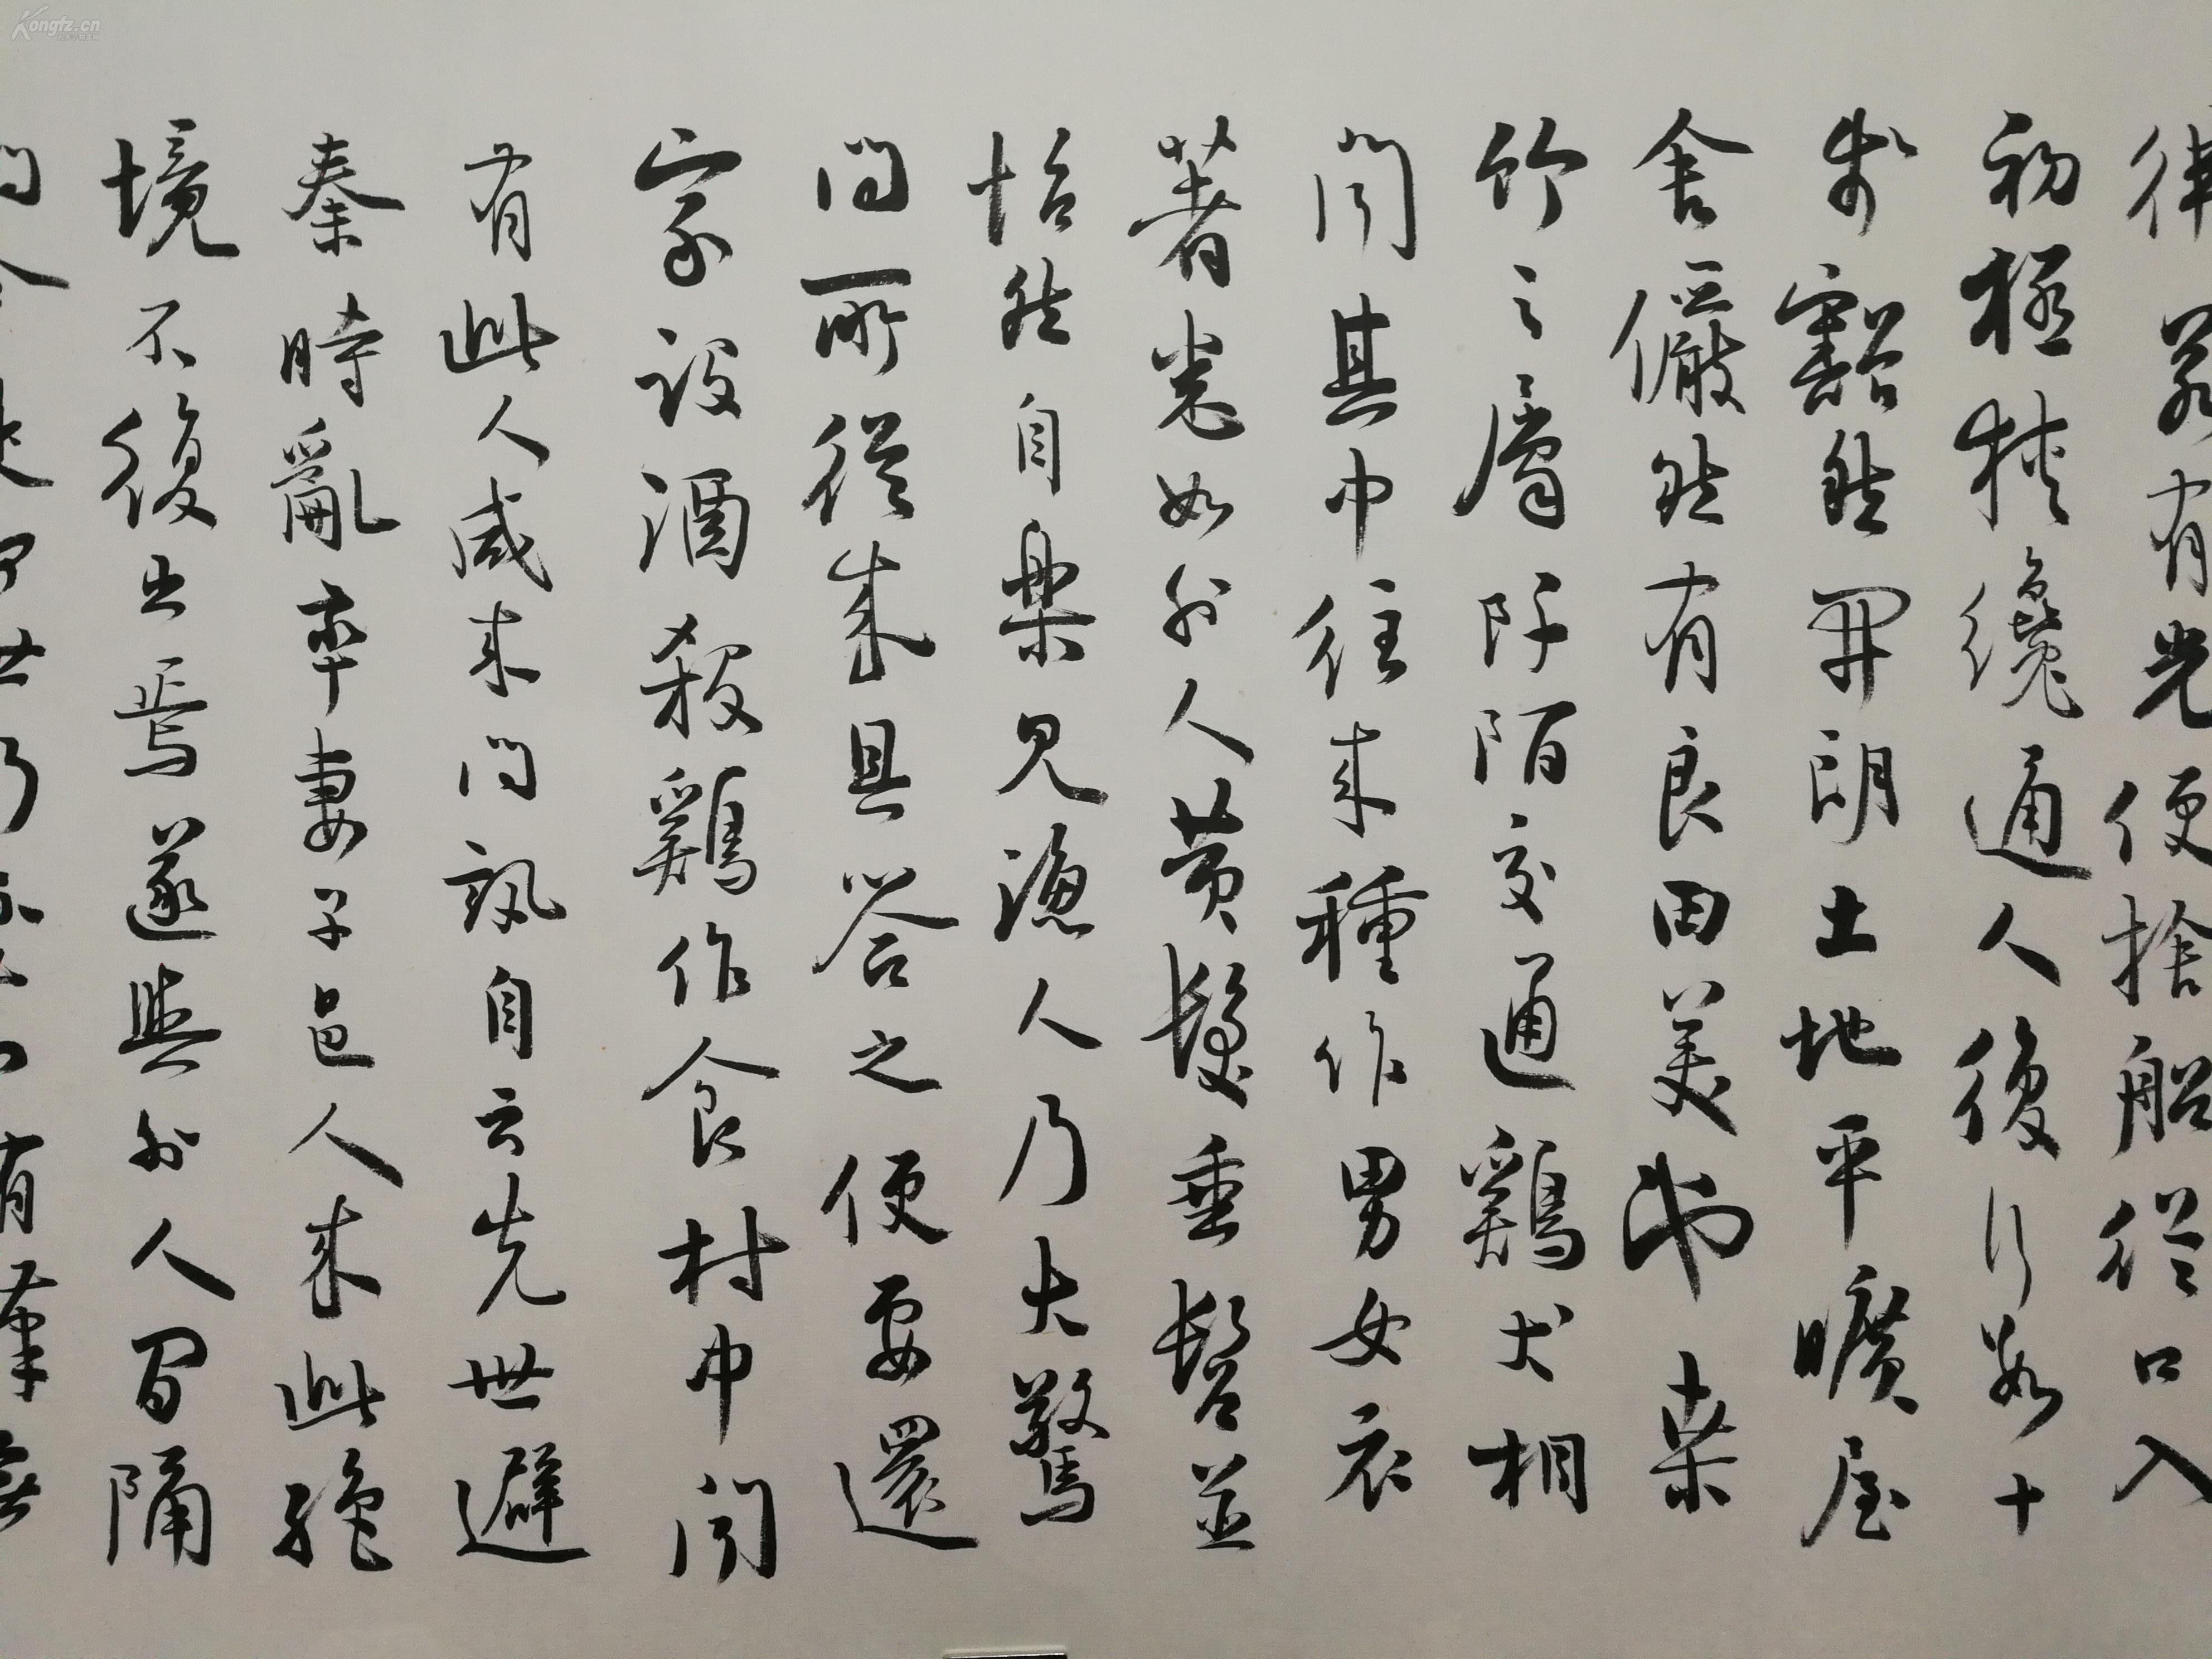 彿若有光便捨船從口入
初極狹纔通人復行數十
步豁然開朗土地平曠屋
舍儼然有良田美池桑
竹之屬阡陌交通鷄犬相
聞其中往來種作男女衣
著悉如外人黃髮垂髫並
怡然自樂見漁人乃大驚
問所從來具答之便要還
家設酒殺鷄作食村中聞
有此人咸來問訊自云先世避
秦時亂率妻子邑人來此絕
境不復出焉遂與外人間隔
問今是何世乃不知有漢無
Kongfz.cn